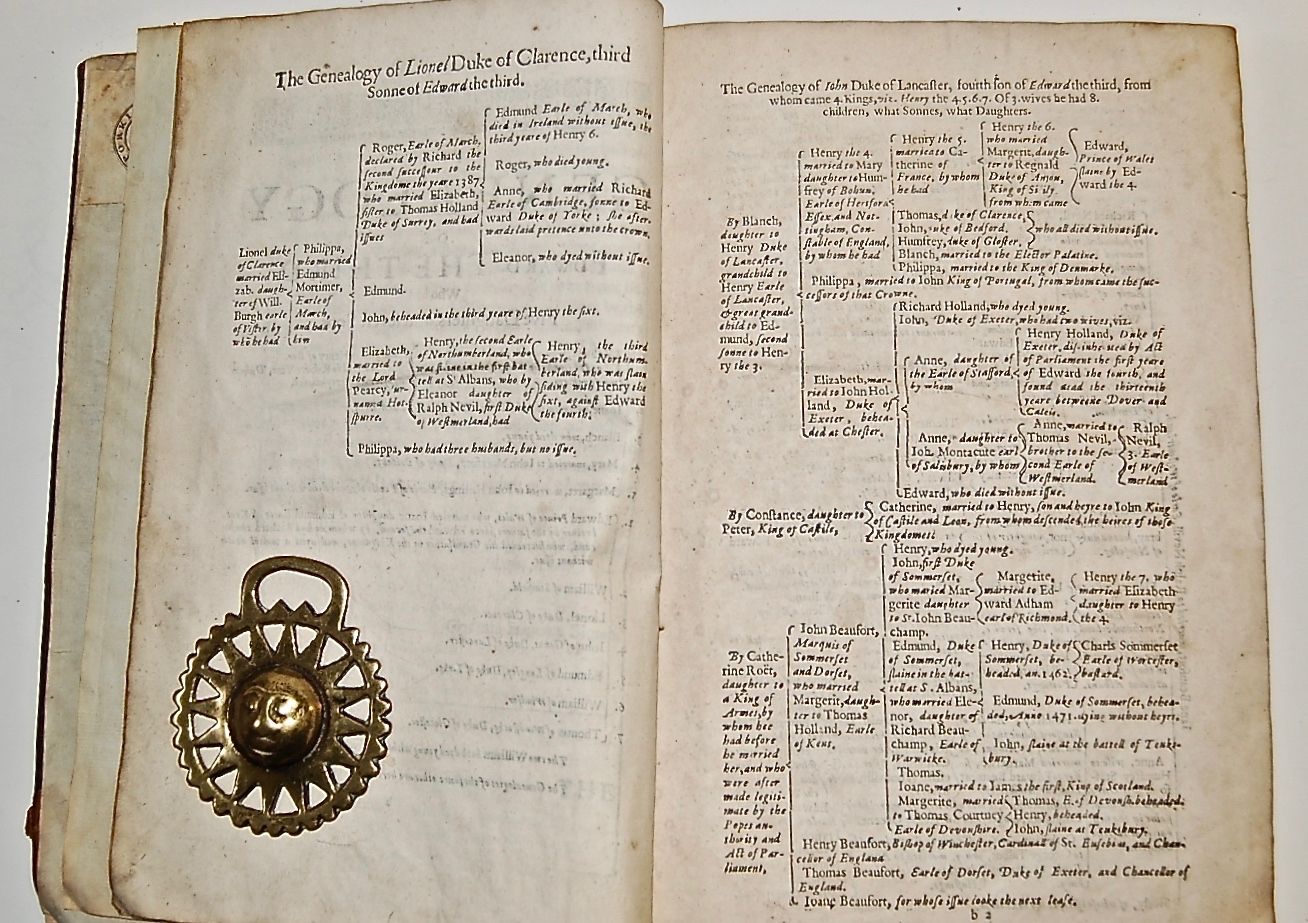 The Genealogy of Lionel Duke of Clarence, third
Sonne of Edward the third.
Lionel duke
of Clarence
married Eli-
zab. daugh-
ter of Will.
Burgh earle
of Vlster by
who he had
Philippa,
who married
Edmund
Mortimer,
Earle of
March,
and had by
him
Roger, Earle of March,
declared by Richard the
second successour to the
Kingdome the yeare 1387
who married Elizabeth,
sister to Thomas Holland
Duke of Surrey, and had
issues
Edmund Earle of March, who
died in Ireland without issue, the
third yeare of Henry 6.
Roger, who died young.
Anne, who married Richard
Earle of Cambridge, sonne to Ed-
ward Duke of Yorke; she after-
wards laid pretence unto the crown.
Eleanor, who dyed without issue.
Edmund.
Iohn, beheaded in the third yeare of Henry the sixt.
Elizabeth,
married to
the Lord
Pearcy, sur-
named Hot-
spurre.
Henry, the second Earle
of Northumberland, who
was slaine in the first bat-
tell at St Albans, who by
Eleanor daughter of
Ralph Nevil, first Duke
of Westmerland, had
Henry, the third
Earle of Northum-
berland, who was slain
siding with Henry the
sixt, against Edward
the fourth.
Philippa, who had three husbands, but no issue.
The Genealogy of Iohn Duke of Lancaster, fourth son of Edward the third, from
whom came 4. Kings, viz. Henry the 4. 5. 6. 7. Of 3. wives he had 8.
children, what Sonnes, what Daughters.
By Blanch,
daughter to
Henry Duke
of Lancaster,
grandchild to
Henry Earle
of Lancaster,
& great grand-
child to Ed-
mund, second
sonne to Hen-
ry the 3.
Henry the 4.
married to Mary
daughter to Hum-
frey of Bohun,
Earle of Hertford
Essex, and Not-
tingham, Con-
stable of England,
by whom he had
Henry the 5.
married to Ca-
therine of
France, by whom
he had
Henry the 6.
who married
Margeret, daugh-
ter to Regnald
Duke of Anjou,
King of Sicily
from whom came
Edward,
Prince of Wales
slaine by Ed-
ward the 4.
Thomas, duke of Clarence,
Iohn, duke of Bedford.
Humfrey, duke of Gloster.
who all died without issue.
Blanch, married to the Elector Palatine.
Philippa, married to the King of Denmarke.
Philippa, married to Iohn King of Portugal, from whom came the suc-
cessors of that Crowne.
Elizabeth, mar-
ried to Iohn Hol-
land, Duke of
Exeter, behea-
ded at Chester.
Richard Holland, who dyed young.
Iohn, Duke of Exeter, who had two wives, viz.
Anne, daughter of
the Earle of Stafford,
by whom
Henry Holland, Duke of
Exeter, disinherited by Act
of Parliament the first yeare
of Edward the fourth, and
found dead the thirteenth
yeare betweene Dover and
Caleis.
Anne, daughter to
Ioh. Montacute earl
of Salisbury, by whom
Anne, married to
Thomas Nevil,
brother to the se-
cond Earle of
Westmerland.
Ralph
Nevil,
3. Earle
of West-
merland
Edward, who died without issue.
By Constance, daughter to
Peter, King of Castile,
Catherine, married to Henry, son and heyre to Iohn King
of Castile and Leon, from whom descended the heires of those
Kingdomes.
By Cathe-
rine Roët,
daughter to
a King of
Armes, by
whom hee
had before
he married
her, and who
were after
made legiti-
mate by the
Popes au-
thority and
Act of Par-
liament,
Iohn Beaufort,
Marquis of
Sommerset
and Dorset,
who married
Margerit, daugh-
ter to Thomas
Holland, Earle
of Kent.
Henry, who dyed young.
Iohn, first Duke
of Sommerset,
who maried Mar-
gerite daughter
to St. Iohn Beau-
champ.
Margerite,
married to Ed-
ward Adham
earl of Richmond,
Henry the 7. who
married Elizabeth
daughter to Henry
the 4.
Edmund, Duke
of Sommerset,
slaine in the bat-
tell at S. Albans,
who married Ele-
nor, daughter of
Richard Beau-
champ, Earle of
Warwicke.
Henry, Duke of
Sommerset, be-
headed, an. 1462.
Charls Sommerset
Earle of Worcester,
bastard.
Edmund, Duke of Sommerset, behea-
ded, Anno 1471. dying without heyre.
Iohn, slaine at the battell of Teuks-
bury.
Thomas,
Ioane, married to Iames the first, King of Scotland.
Margerite, married
to Thomas, Courtney
Earle of Devonshire.
Thomas, E. of Devonsh. beheaded.
Henry, beheaded.
Iohn, slaine at Teuksbury.
Henry Beaufort, Bishop of Winchester, Cardinall of St. Eusebius, and Chan-
cellor of England
Thomas Beaufort, Earle of Dorset, Duke of Exeter, and Chancellor of
England.
Ioane Beaufort, for whose issue looke the next lease.
b 2